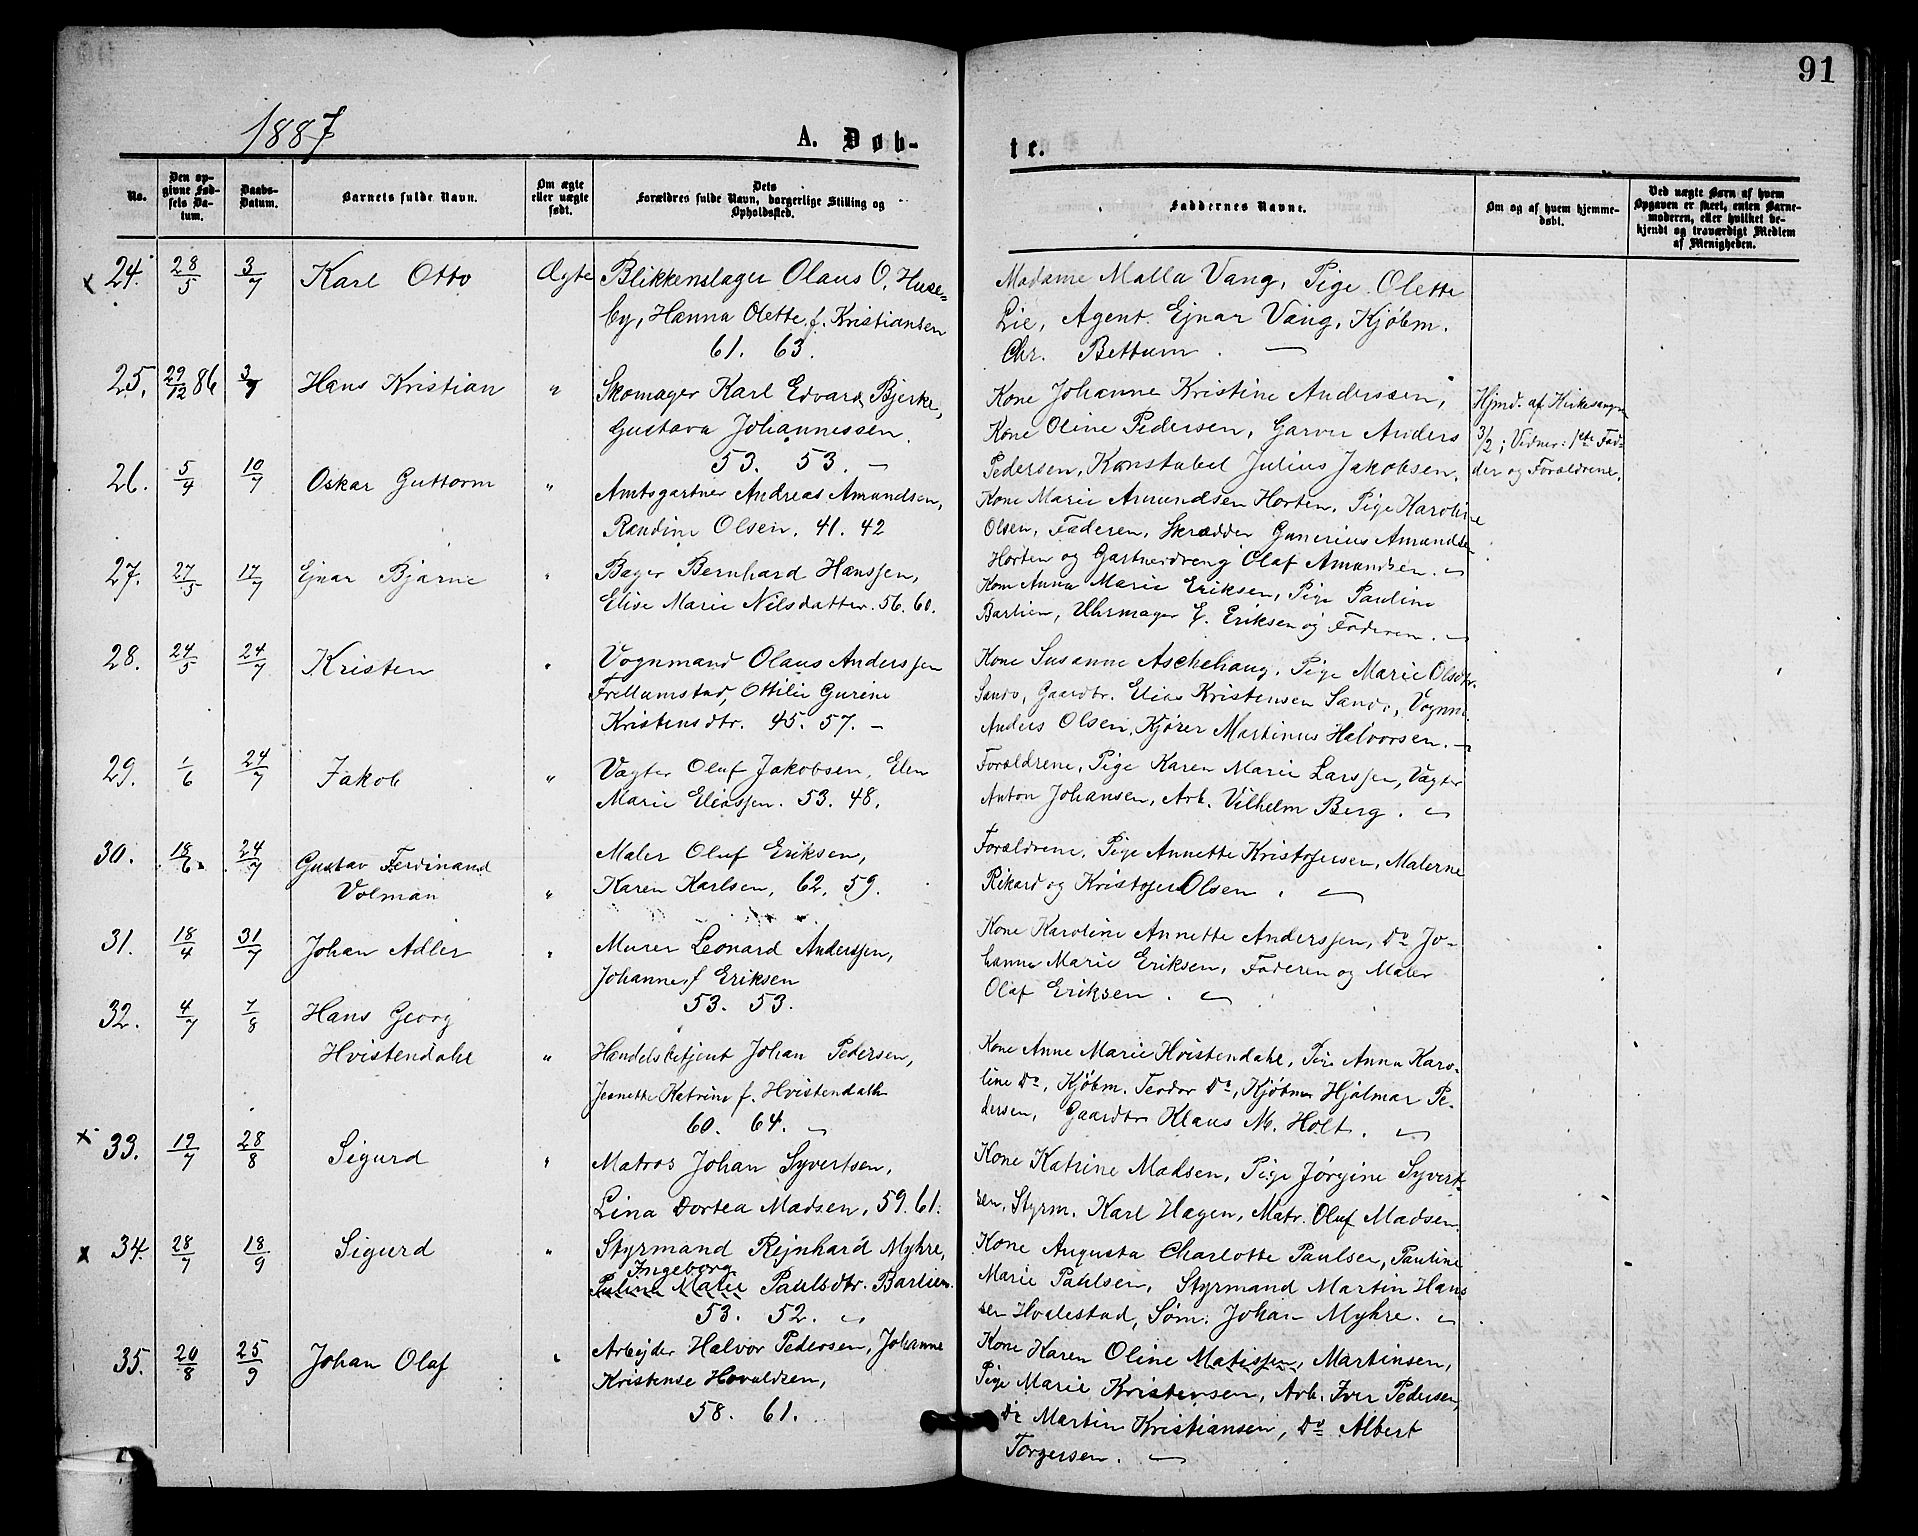 91
1887
A. Døb-
te.
No.
Den op-
givne Fød-
sels Da-
tum.
Daabs-
Datum.
Barnets fulde Navn.
Om ægte
eller uægte
født.
Dets
Forældres fulde Navn, borgerlige Stilling og
Opholdssted.
Faddernes Navne.
Om og af hvem hjemme-
døbt.
Ved uægte Børn af hvem
Opgaven er skeet, enten Barne-
moderen, eller hvilket be-
kjendt og troværdigt Medlem
af Menigheden.
x 24. 28/5 3/7 Karl Otto Ægte Blikkenslager Olaus O. Huse-
by, Hanna Olette f. Kristiansen
61. 63.
Madame Malla Vang, Pige Olette
Lie, Agent Ejnar Vang, Kjøbm.
Chr. Bettum. —
25. 29/12 86 3/7 Hans Kristian " Skomager Karl Edvard Bjerke,
Gustava Johannessen.
53. 53. —
Kone Johanne Kristine Anderssen,
Kone Oline Pedersen, Garver Anders
Pedersen, Konstabel Julius Jakobsen.
Hjmd. af Kirkesanger
3/2; Vidner: 1ste Fad-
der og Forældrene.
26. 5/4 10/7 Oskar Guttorm " Amtsgartner Andreas Amundsen,
Randine Olsen. 41. 42
Kone Marie Amundsen Horten, Pige Karoline
Olsen, Faderen, Skrædder Gunerius Amundsen
Horten og Gartnerdreng Olaf Amundsen.
27. 27/5 17/7 Ejnar Bjarne " Bager Bernhard Hanssen,
Elise Marie Nilsdatter. 56. 60.
Kone Anna Marie Eriksen, Pige Pauline
Barlien, Uhrmager E. Eriksen og Faderen.
28. 24/5 24/7 Kristen " Vognmand Olaus Anderssen
Trellumstad, Ottilie Gurine
Kristensdtr. 45. 57. —
Kone Susanne Aschehaug, Pige Marie Olsdtr.
Sando, Gaardbr. Elias Kristensen Sando, Vognm.
Anders Olsen, Kjører Martinus Halvorsen. —
29. 1/6 24/7 Jakob " Vægter Oluf Jakobsen, Elen
Marie Eliassen. 53. 48.
Forældrene, Pige Karen Marie Larssen, Vægter
Anton Johansen, Arb. Vilhelm Berg.
30. 18/6 24/7 Gustav Ferdinand
Volman " Maler Oluf Eriksen,
Karen Karlsen, 62. 59.
Forældrene, Pige Annette Kristofersen, Malerne
Rikard og Kristofer Olsen.
31. 18/4 31/7 Johan Adler " Murer Leonard Anderssen,
Johanne f. Eriksen
53. 53.
Kone Karoline Annette Anderssen, Do Jo-
hanne Marie Eriksen, Faderen og Maler
Olaf Eriksen.
32. 4/7 7/8 Hans Georg
Hvistendahl " Handelsbetjent Johan Pedersen,
Jeanette Katrine f. Hvistendahl
60. 64.
Kone Anne Marie Hvistendahl, Pige Anna Karo-
line Do, Kjøbm. Teodor Do, Kjøbm Hjalmar Pe-
dersen, Gaardbr Klaus M. Holt.
x 33. 19/7 28/8 Sigurd " Matros Johan Syvertsen,
Lina Dortea Madsen, 59. 61.
Kone Katrine Madsen, Pige Jørgine Syvert-
sen, Styrm. Karl Hagen, Matr. Oluf Madsen.
x 34. 28/7 18/9 Sigurd " Styrmand Rejnhard Myhre,
Ingeborg
Pauline Marie Paulsdtr. Barlien.
53. 52.
Kone Augusta Charlotte Paulsen, Pauline
Marie Paulsen, Styrmand Martin Hans
sen Hvalestad, Søm. Johan Myhre.
35. 20/8 25/9 Johan Olaf " Arbejder Halvor Pedersen, Johanne
Kristense Hovaldsen,
58. 61.
Kone Karen Oline Matissen, Martinsen,
Pige Marie Kristensen, Arb. Iver Pedersen,
Do Martin Kristiansen, Do Albert
Torgersen. —